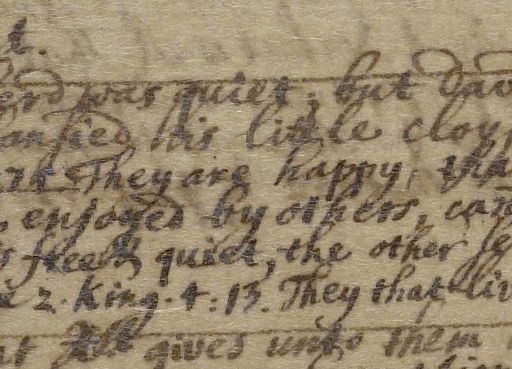 t.
herd was quiet; but Dav
his little
They are happy, tha
enjoyed by others, can
quiet, the other se
2. King. 4: 13. They that liv
gives unto them